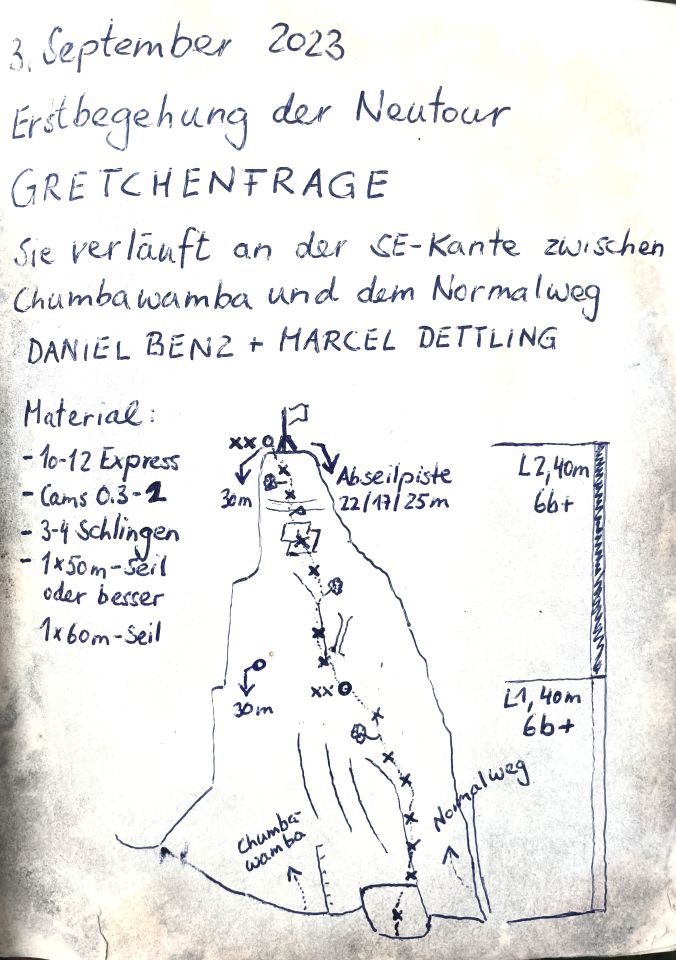 3. September 2023
Erstbegehung der Neutour
GRETCHENFRAGE
Sie verläuft an der SE-Kante zwischen
Chumbawamba und dem Normalweg
DANIEL BENZ + MARCEL DETTLING
Material:
- 10-12 Express
- Cams 0.3-2
- 3-4 Schlingen
- 1x50m-Seil
oder besser
1x60m-Seil
xx
30m
Abseilpiste
22/17/25m
xx
30m
Chumba-
wamba
Normalweg
L2, 40m
6b+
L1, 40m
6b+